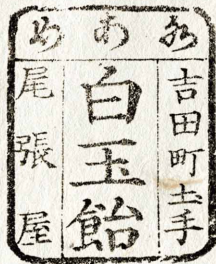 あめ
吉田町土手
白玉飴
尾張屋